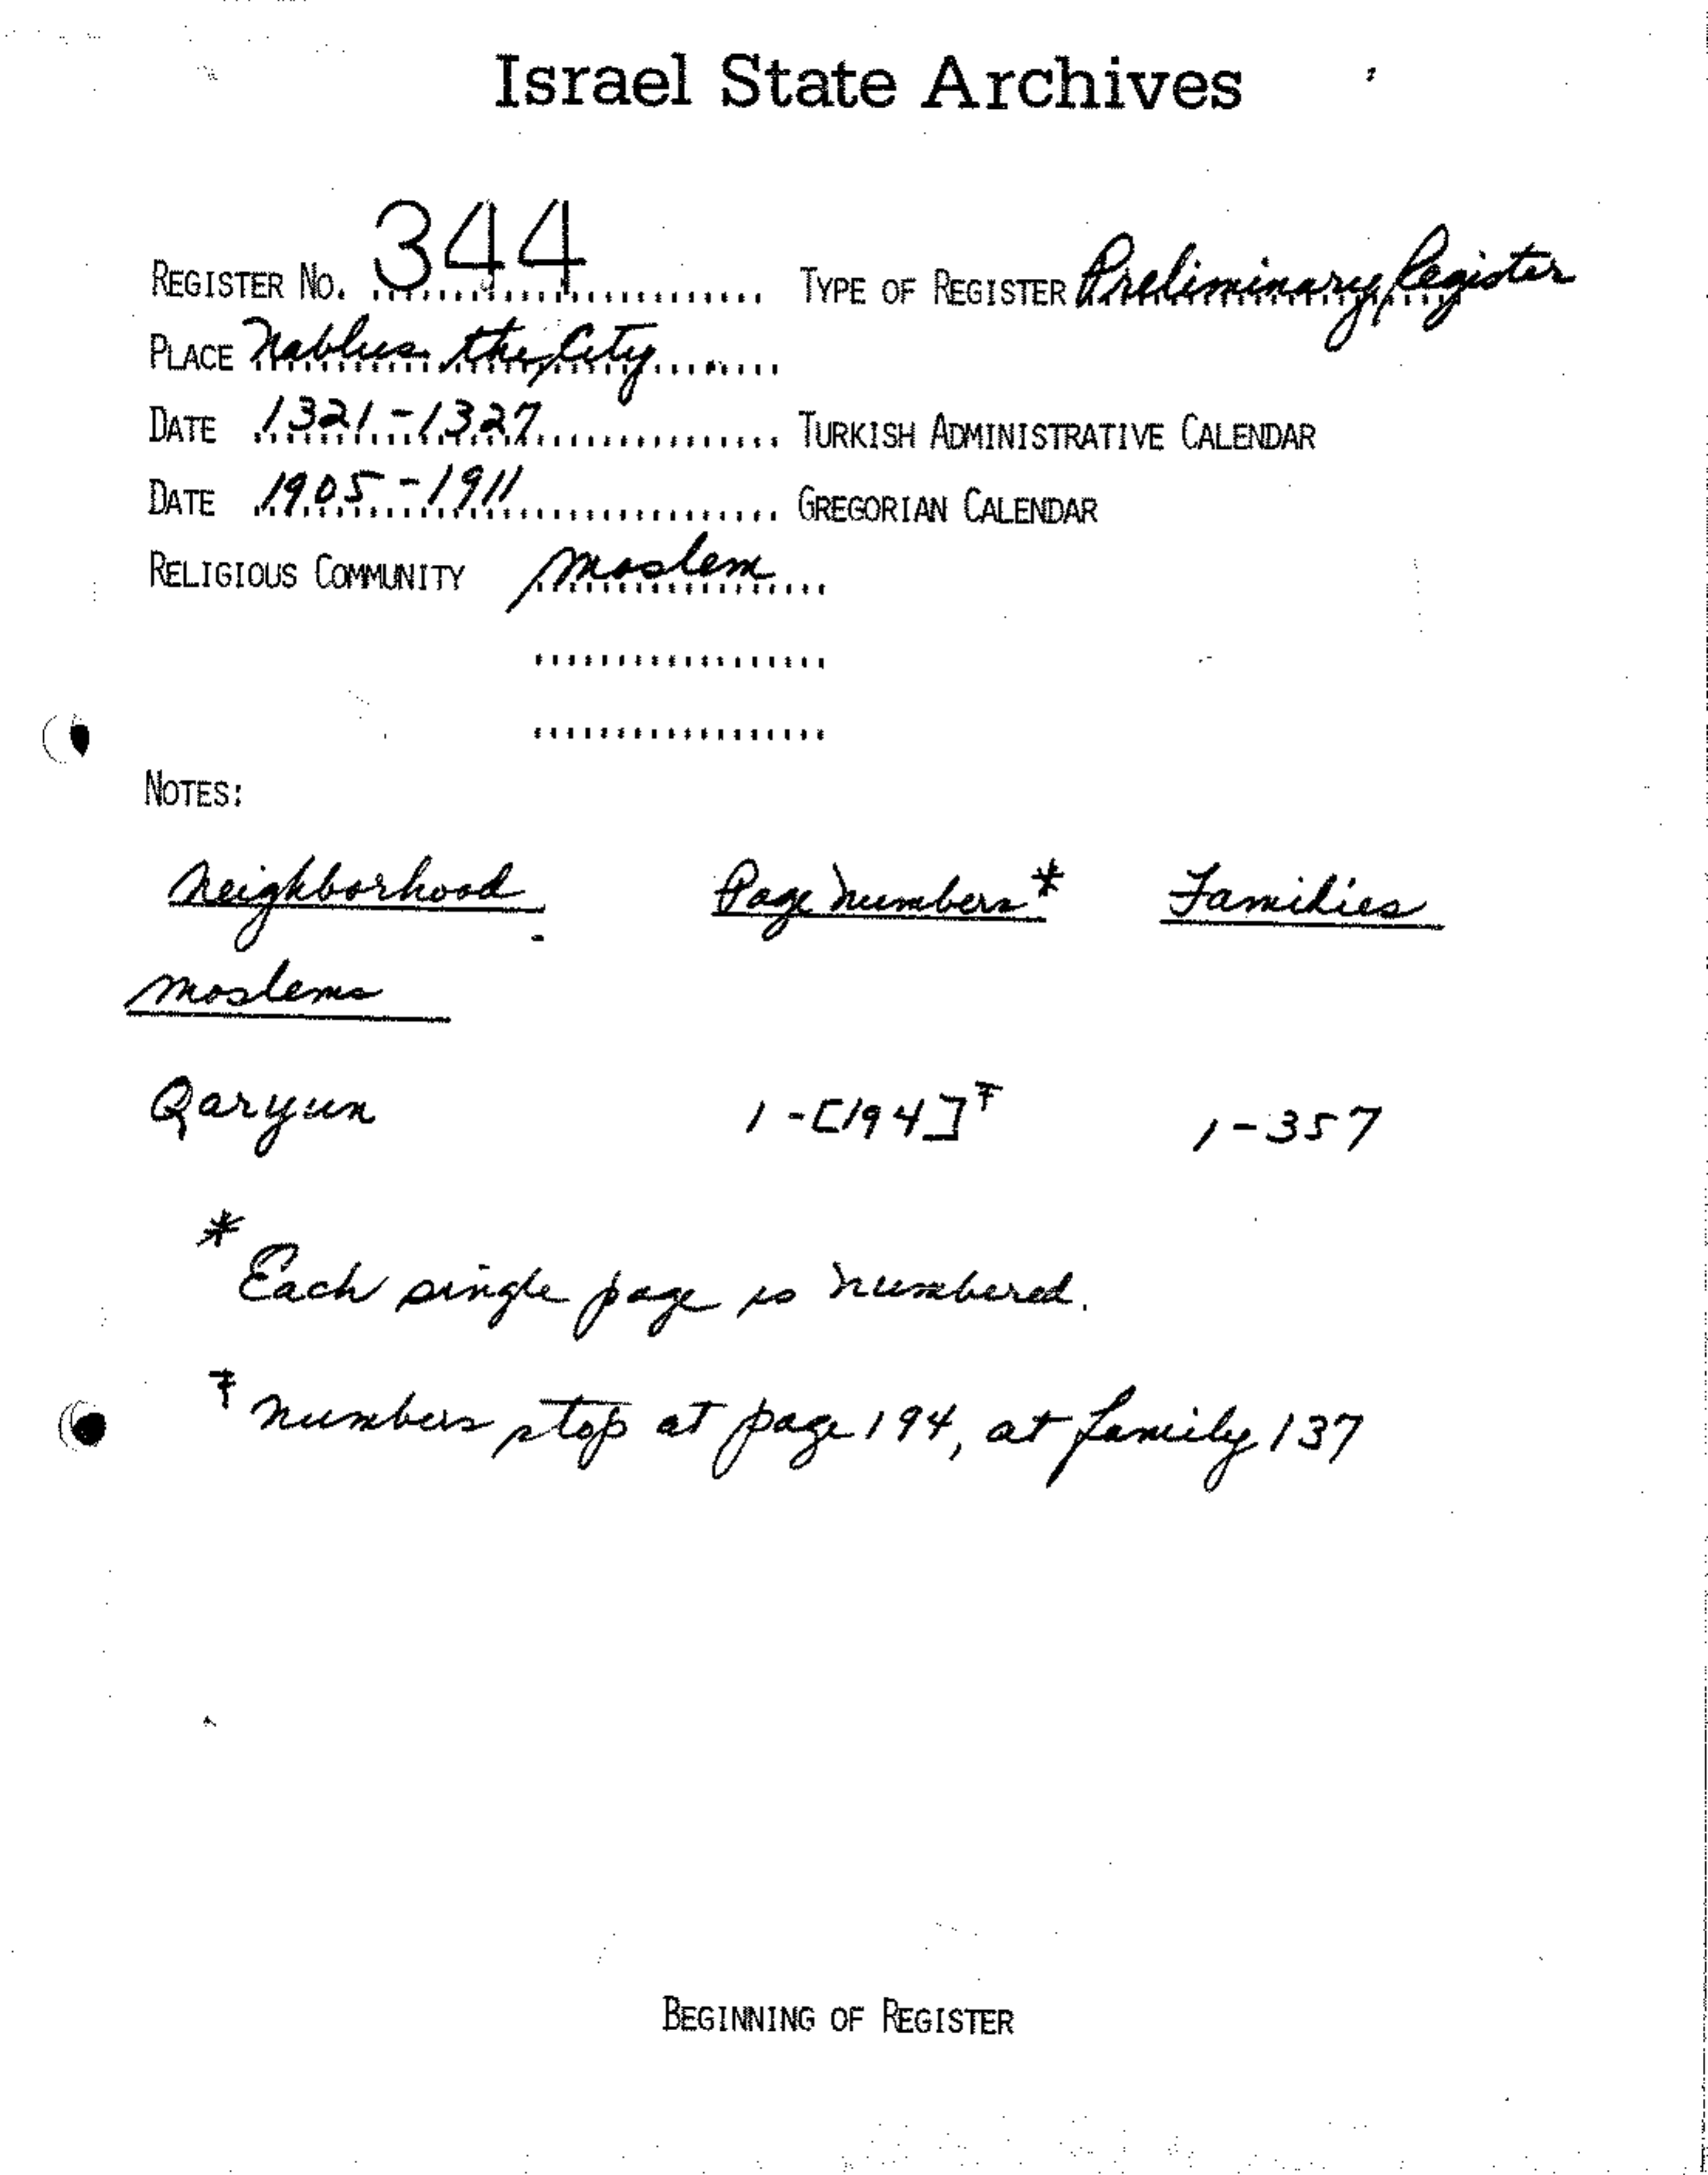 Israel State Archives
REGISTER NO. 344 TYPE OF REGISTER Preliminary Register
PLACE Nablus the City
DATE 1321-1327 TURKISH ADMINISTRATIVE CALENDAR
DATE 1905-1911 GREGORIAN CALENDAR
RELIGIOUS COMMUNITY Moslem
NOTES:
Neighborhood Page Numbers* Families
Moslems
Qaryun 1-[194]‡ 1-357
* Each single page is numbered.
‡ Numbers stop at page 194, at family 137
BEGINNING OF REGISTER